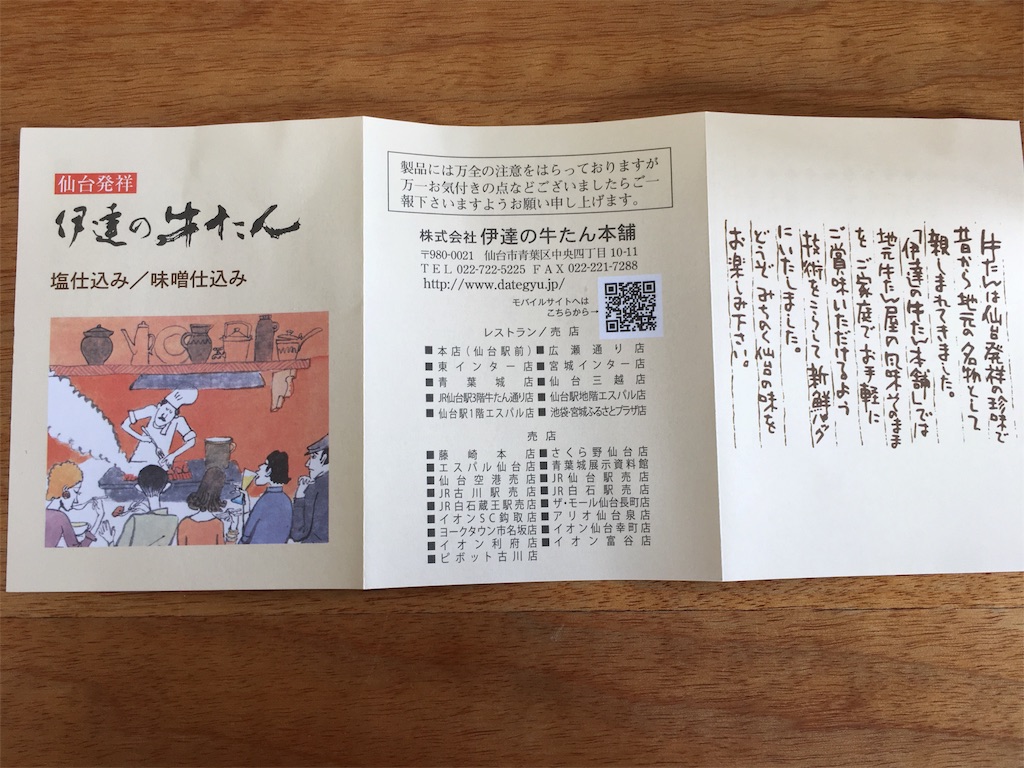 仙台発祥
伊達の牛たん
塩仕込み／味噌仕込み
製品には万全の注意をはらっておりますが
万一お気付きの点などございましたらご一
報下さいますようお願い申し上げます。
株式会社 伊達の牛たん本舗
〒980-0021 仙台市青葉区中央四丁目10-11
TEL 022-722-5225 FAX 022-221-7288
http://www.dategyu.jp/
モバイルサイトへは
こちらから→
レストラン／売店
■本店(仙台駅前) ■広瀬通り店
■東インター店 ■宮城インター店
■青葉城店 ■仙台三越店
■JR仙台駅3階牛たん通り店 ■仙台駅地階エスパル店
■仙台駅1階エスパル店 ■池袋・宮城ふるさとプラザ店
売店
■藤崎本店 ■さくら野仙台店
■エスパル仙台店 ■青葉城展示資料館
■仙台空港売店 ■JR仙台駅売店
■JR古川駅売店 ■JR白石駅売店
■JR白石蔵王駅売店 ■ザ・モール仙台長町店
■イオンSC鈎取店 ■アリオ仙台泉店
■ヨークタウン市名坂店 ■イオン仙台幸町店
■イオン利府店 ■イオン富谷店
■ピボット古川店
牛たんは仙台発祥の珍味で
昔から地元の名物として
親しまれてきました。
「伊達の牛たん本舗」では
地元牛たん屋の風味そのまま
を、ご家庭でお手軽に
ご賞味いただけるよう
技術をこらして新鮮パック
にいたしました。
どうぞ、みちのく仙台の味を
お楽しみ下さい。